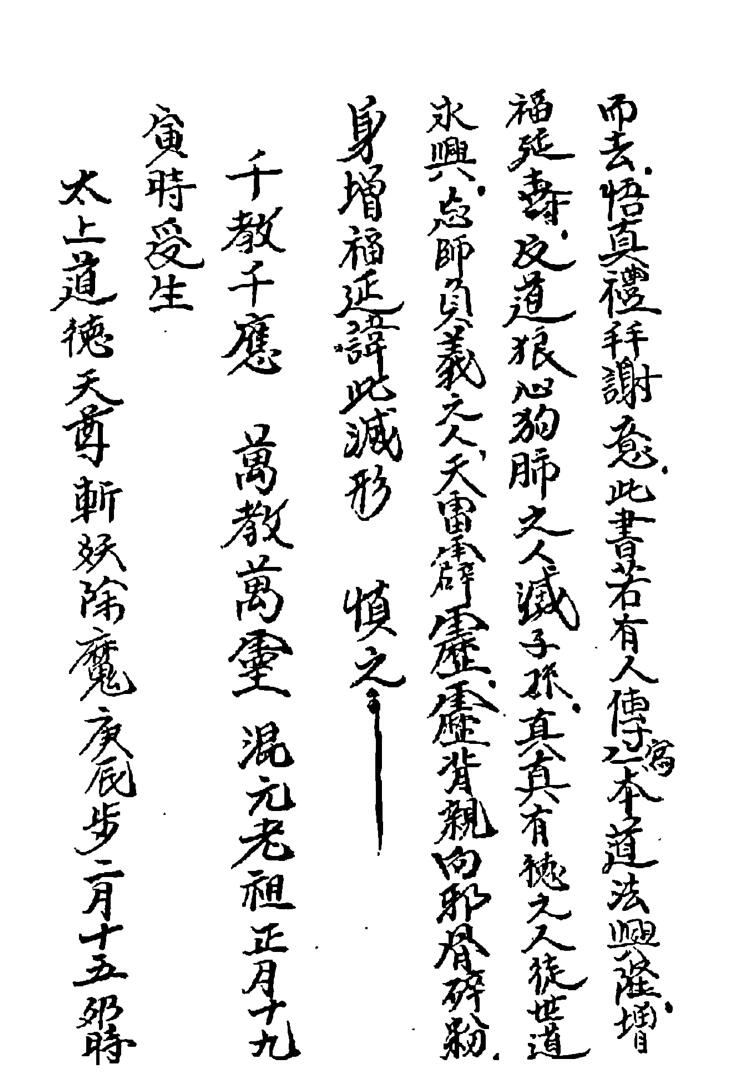 而去悟真禮拜謝意此書若有人傳寫一本道法興隆增
福延壽反道狼心狗肺之人滅子孫真真有德之人徒世道
永興忘師負義之人天雷霹靂靂背親向邪骨碎粉
身增福延諱此滅形 慎之
千教千應 萬教萬靈 混元老祖正月十九
寅時受生
太上道德天尊斬妖除魔庚辰步二月十五卯時